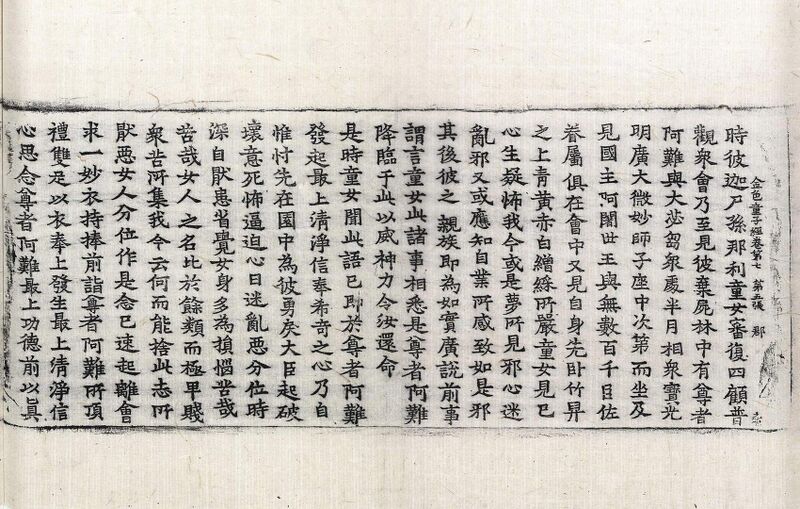 時彼迦尸孫那利童女審復四顧普
金色童子經卷第七 第五張 郡
觀衆會乃至見彼棄屍林中有尊者
阿難與大苾芻衆處半月相衆寶光
明廣大微妙師子座中次第而坐及
見國主阿闍世王與無數百千臣佐
眷屬俱在會中又見自身先臥竹舁
之上青黃赤白繒綵所嚴童女見已
心生疑怖我今或是夢所見邪心迷
亂邪又或應知自業所感致如是邪
其後彼之親族即為如實廣說前事
謂言童女此諸事相悉是尊者阿難
降臨于此以威神力令汝還命
是時童女聞此語已即於尊者阿難
發起最上清淨信奉希奇之心乃自
惟忖先在園中為彼勇戾大臣起破
壞意死怖逼迫心日迷亂惡分位時
深自猒患省覺女身多為損惱苦哉
苦哉女人之名比於餘類而極卑賤
衆苦所集我今云何而能捨此志所
猒惡女人分位作是念已速起離會
求一妙衣持捧前詣尊者阿難所頂
禮雙足以衣奉上發生最上清淨信
心思念尊者阿難最上功德前以眞